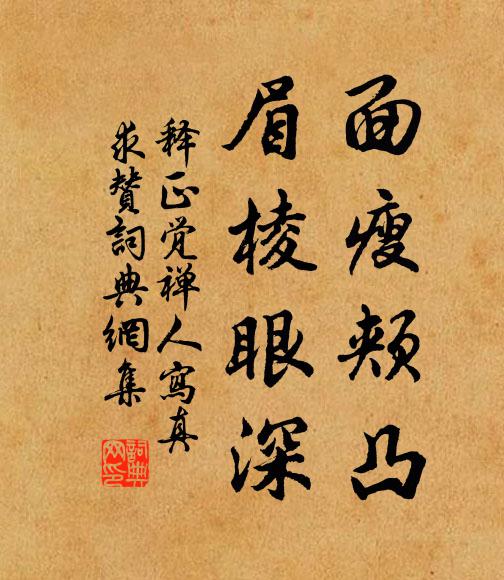 面瘦颊凸
眉棱眼深
释正觉禅人寫真
求赞詞典網集
詞典
网印